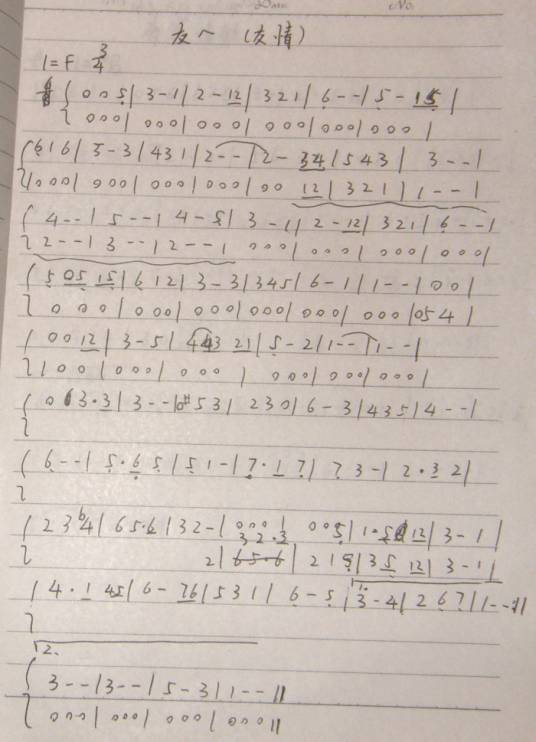 Date No.
友~ (友情)
1=F 3/4
6/8 { 0 0 5 | 3 - 1 | 2 - 12 | 3 2 1 | 6 - - | 5 - 15 |
0 0 0 | 0 0 0 | 0 0 0 | 0 0 0 | 0 0 0 | 0 0 0 |
6 1 6 | 5 - 3 | 4 3 1 | 2 - - | 2 - 34 | 5 4 3 | 3 - - |
0 0 0 | 0 0 0 | 0 0 0 | 0 0 0 | 0 0 12 | 3 2 1 | 1 - - |
4 - - | 5 - - | 4 - 5 | 3 - 1 | 2 - 12 | 3 2 1 | 6 - - |
2 - - | 3 - - | 2 - - | 0 0 0 | 0 0 0 | 0 0 0 | 0 0 0 |
5 05 15 | 6 1 2 | 3 - 3 | 3 4 5 | 6 - 1 | 1 - - | 0 0 |
0 0 0 | 0 0 0 | 0 0 0 | 0 0 0 | 0 0 0 | 0 0 0 | 0 5 4 |
0 0 12 | 3 - 5 | 4 43 21 | 5 - 2 | 1 - - | 1 - - |
1 0 0 | 0 0 0 | 0 0 0 | 0 0 0 | 0 0 0 | 0 0 0 |
0 3·3 | 3 - - | 0 #5 3 | 2 3 0 | 6 - 3 | 4 3 5 | 4 - - |
6 - - | 5·6 5 | 5 1 - | 7·1 7 | 7 3 - | 2·3 2 |
2 3 b4 | 6 5·6 | 3 2 - | 0 0 0 | 0 0 5 | 1·5 12 | 3 - 1 |
3 2·3
2 | 6 5·6 | 2 1 5 | 3 5 12 | 3 - 1 |
4·1 45 | 6 - 76 | 5 3 1 | 6 - 5 | 1. 3 - 4 | 2 6 7 | 1 - - :||
2.
3 - - | 3 - - | 5 - 3 | 1 - - ||
0 0 0 | 0 0 0 | 0 0 0 | 0 0 0 ||